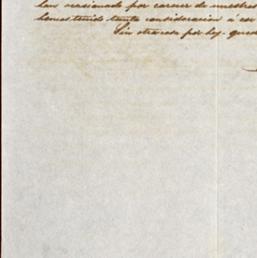 han ocasionado por carecer de nuestros
hemos tenido tanta consideracion a ser
Sin otra cosa por hoy. qued